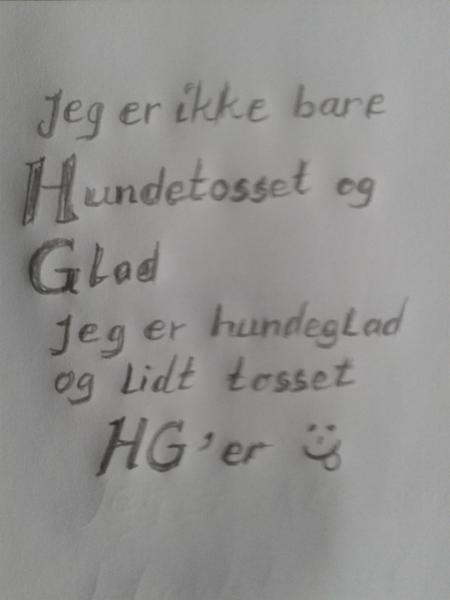 Jeg er ikke bare
Hundetosset og
Glad
Jeg er hundeglad
og lidt tosset
HG'er